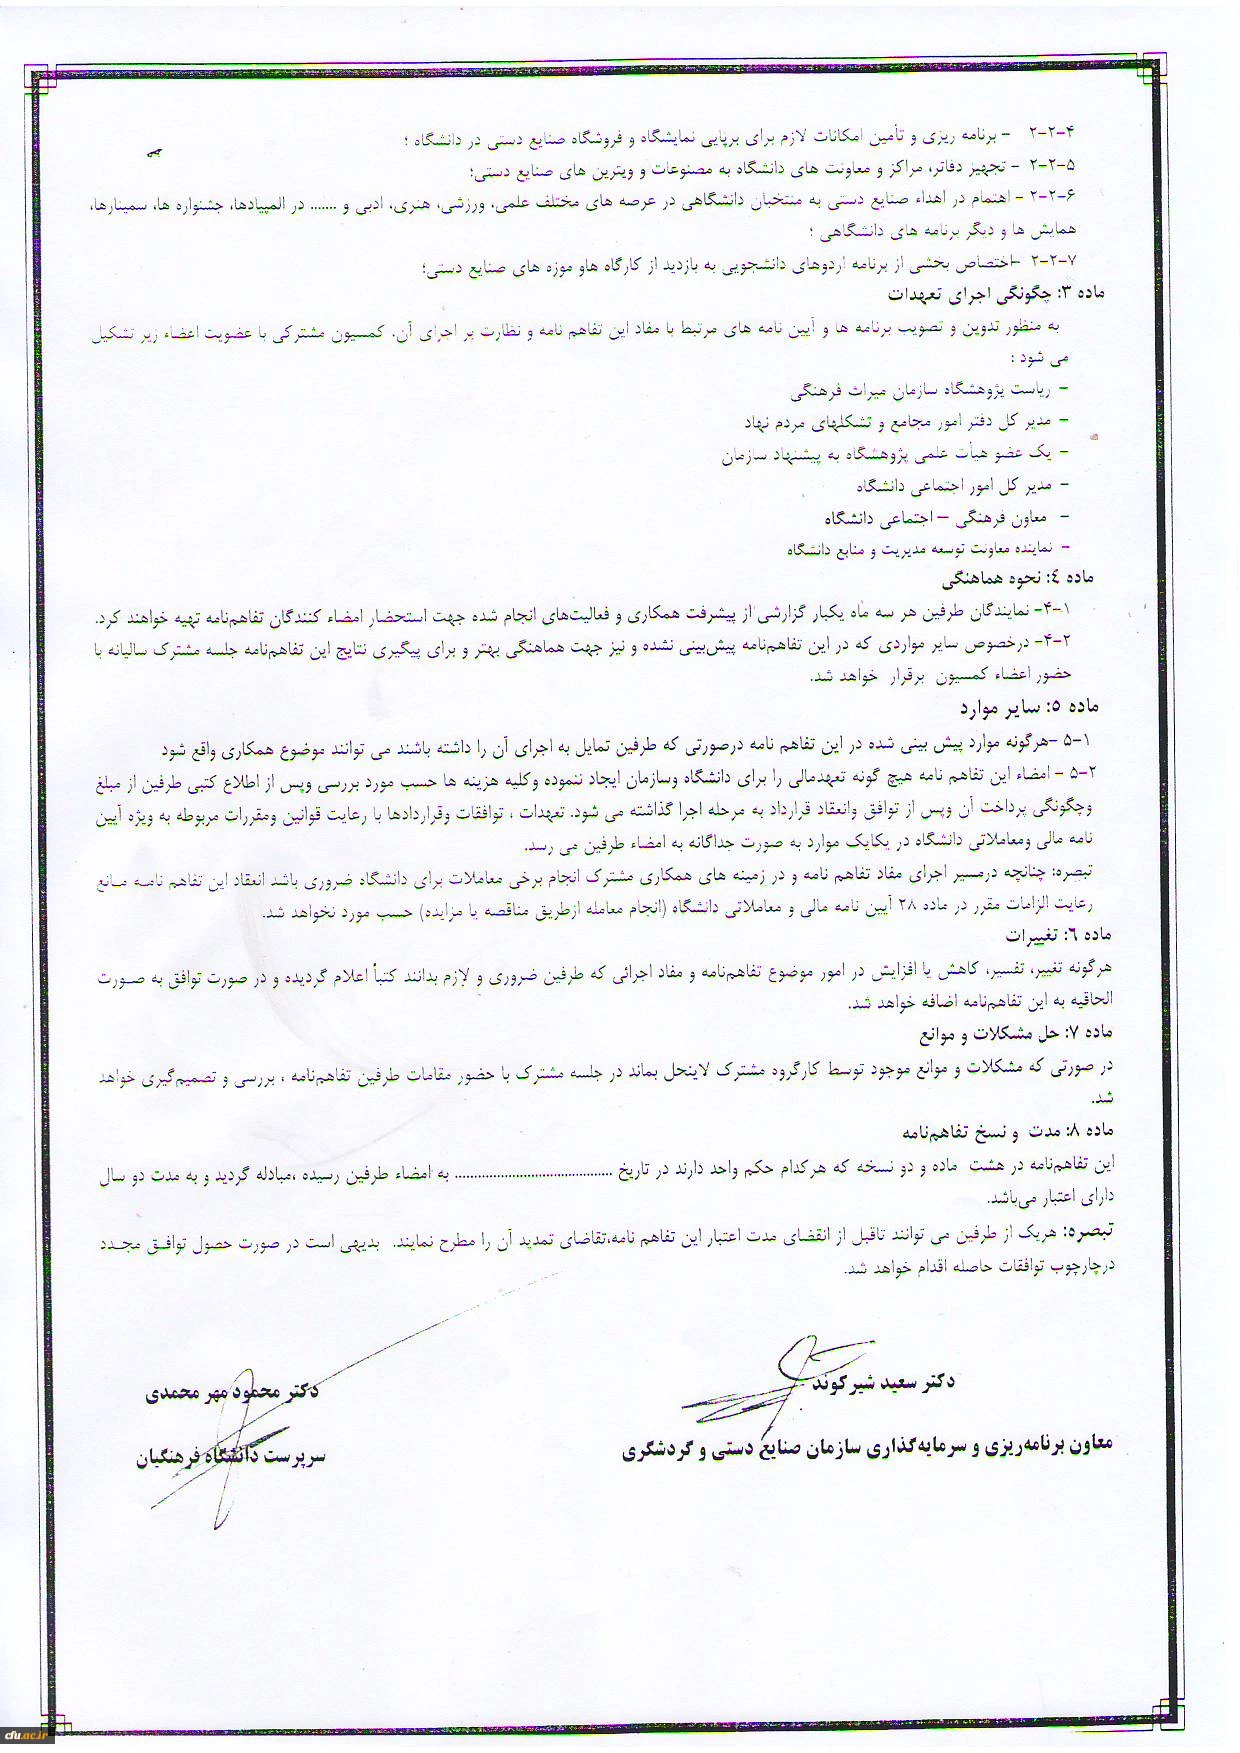 ۲-۲-۴ - برنامه ریزی و تأمین امکانات لازم برای برپایی نمایشگاه و فروشگاه صنایع دستی در دانشگاه ؛
۲-۲-۵ - تجهیز دفاتر، مراکز و معاونت های دانشگاه به مصنوعات و ویترین های صنایع دستی؛
۲-۲-۶ - اهتمام در اهداء صنایع دستی به منتخبان دانشگاهی در عرصه های مختلف علمی، ورزشی، هنری، ادبی و ....... در المپیادها، جشنواره ها، سمینارها،
همایش ها و دیگر برنامه های دانشگاهی ؛
۲-۲-۷ -اختصاص بخشی از برنامه اردوهای دانشجویی به بازدید از کارگاه هاو موزه های صنایع دستی؛
ماده ۳: چگونگی اجرای تعهدات
به منظور تدوین و تصویب برنامه ها و آیین نامه های مرتبط با مفاد این تفاهم نامه و نظارت بر اجرای آن، کمسیون مشترکی با عضویت اعضاء زیر تشکیل
می شود :
- ریاست پژوهشگاه سازمان میراث فرهنگی
- مدیر کل دفتر امور مجامع و تشکلهای مردم نهاد
- یک عضو هیأت علمی پژوهشگاه به پیشنهاد سازمان
- مدیر کل امور اجتماعی دانشگاه
- معاون فرهنگی – اجتماعی دانشگاه
- نماینده معاونت توسعه مدیریت و منابع دانشگاه
ماده ۴: نحوه هماهنگی
۴-۱- نمایندگان طرفین هر سه ماه یکبار گزارشی از پیشرفت همکاری و فعالیت‌های انجام شده جهت استحضار امضاء کنندگان تفاهم‌نامه تهیه خواهند کرد.
۴-۲- درخصوص سایر مواردی که در این تفاهم‌نامه پیش‌بینی نشده و نیز جهت هماهنگی بهتر و برای پیگیری نتایج این تفاهم‌نامه جلسه مشترک سالیانه با
حضور اعضاء کمسیون برقرار خواهد شد.
ماده ۵: سایر موارد
۵-۱ -هرگونه موارد پیش بینی شده در این تفاهم نامه درصورتی که طرفین تمایل به اجرای آن را داشته باشند می توانند موضوع همکاری واقع شود
۵-۲ - امضاء این تفاهم نامه هیچ گونه تعهدمالی را برای دانشگاه وسازمان ایجاد ننموده وکلیه هزینه ها حسب مورد بررسی وپس از اطلاع کتبی طرفین از مبلغ
وچگونگی پرداخت آن وپس از توافق وانعقاد قرارداد به مرحله اجرا گذاشته می شود. تعهدات ، توافقات وقراردادها با رعایت قوانین ومقررات مربوطه به ویژه آیین
نامه مالی ومعاملاتی دانشگاه در یکایک موارد به صورت جداگانه به امضاء طرفین می رسد.
تبصره: چنانچه درمسیر اجرای مفاد تفاهم نامه و در زمینه های همکاری مشترک انجام برخی معاملات برای دانشگاه ضروری باشد انعقاد این تفاهم نامه مانع
رعایت الزامات مقرر در ماده ۲۸ آیین نامه مالی و معاملاتی دانشگاه (انجام معامله ازطریق مناقصه یا مزایده) حسب مورد نخواهد شد.
ماده ۶: تغییرات
هرگونه تغییر، تفسیر، کاهش یا افزایش در امور موضوع تفاهم‌نامه و مفاد اجرائی که طرفین ضروری و لازم بدانند کتباً اعلام گردیده و در صورت توافق به صورت
الحاقیه به این تفاهم‌نامه اضافه خواهد شد.
ماده ۷: حل مشکلات و موانع
در صورتی که مشکلات و موانع موجود توسط کارگروه مشترک لاینحل بماند در جلسه مشترک با حضور مقامات طرفین تفاهم‌نامه ، بررسی و تصمیم‌گیری خواهد
شد.
ماده ۸: مدت و نسخ تفاهم‌نامه
این تفاهم‌نامه در هشت ماده و دو نسخه که هرکدام حکم واحد دارند در تاریخ ....................................... به امضاء طرفین رسیده ،مبادله گردید و به مدت دو سال
دارای اعتبار می‌باشد.
تبصره: هریک از طرفین می توانند تاقبل از انقضای مدت اعتبار این تفاهم نامه،تقاضای تمدید آن را مطرح نمایند. بدیهی است در صورت حصول توافق مجدد
درچارچوب توافقات حاصله اقدام خواهد شد.
دکتر سعید شیرکوند
معاون برنامه‌ریزی و سرمایه‌گذاری سازمان صنایع دستی و گردشگری
دکتر محمود مهر محمدی
سرپرست دانشگاه فرهنگیان
cfu.ac.ir